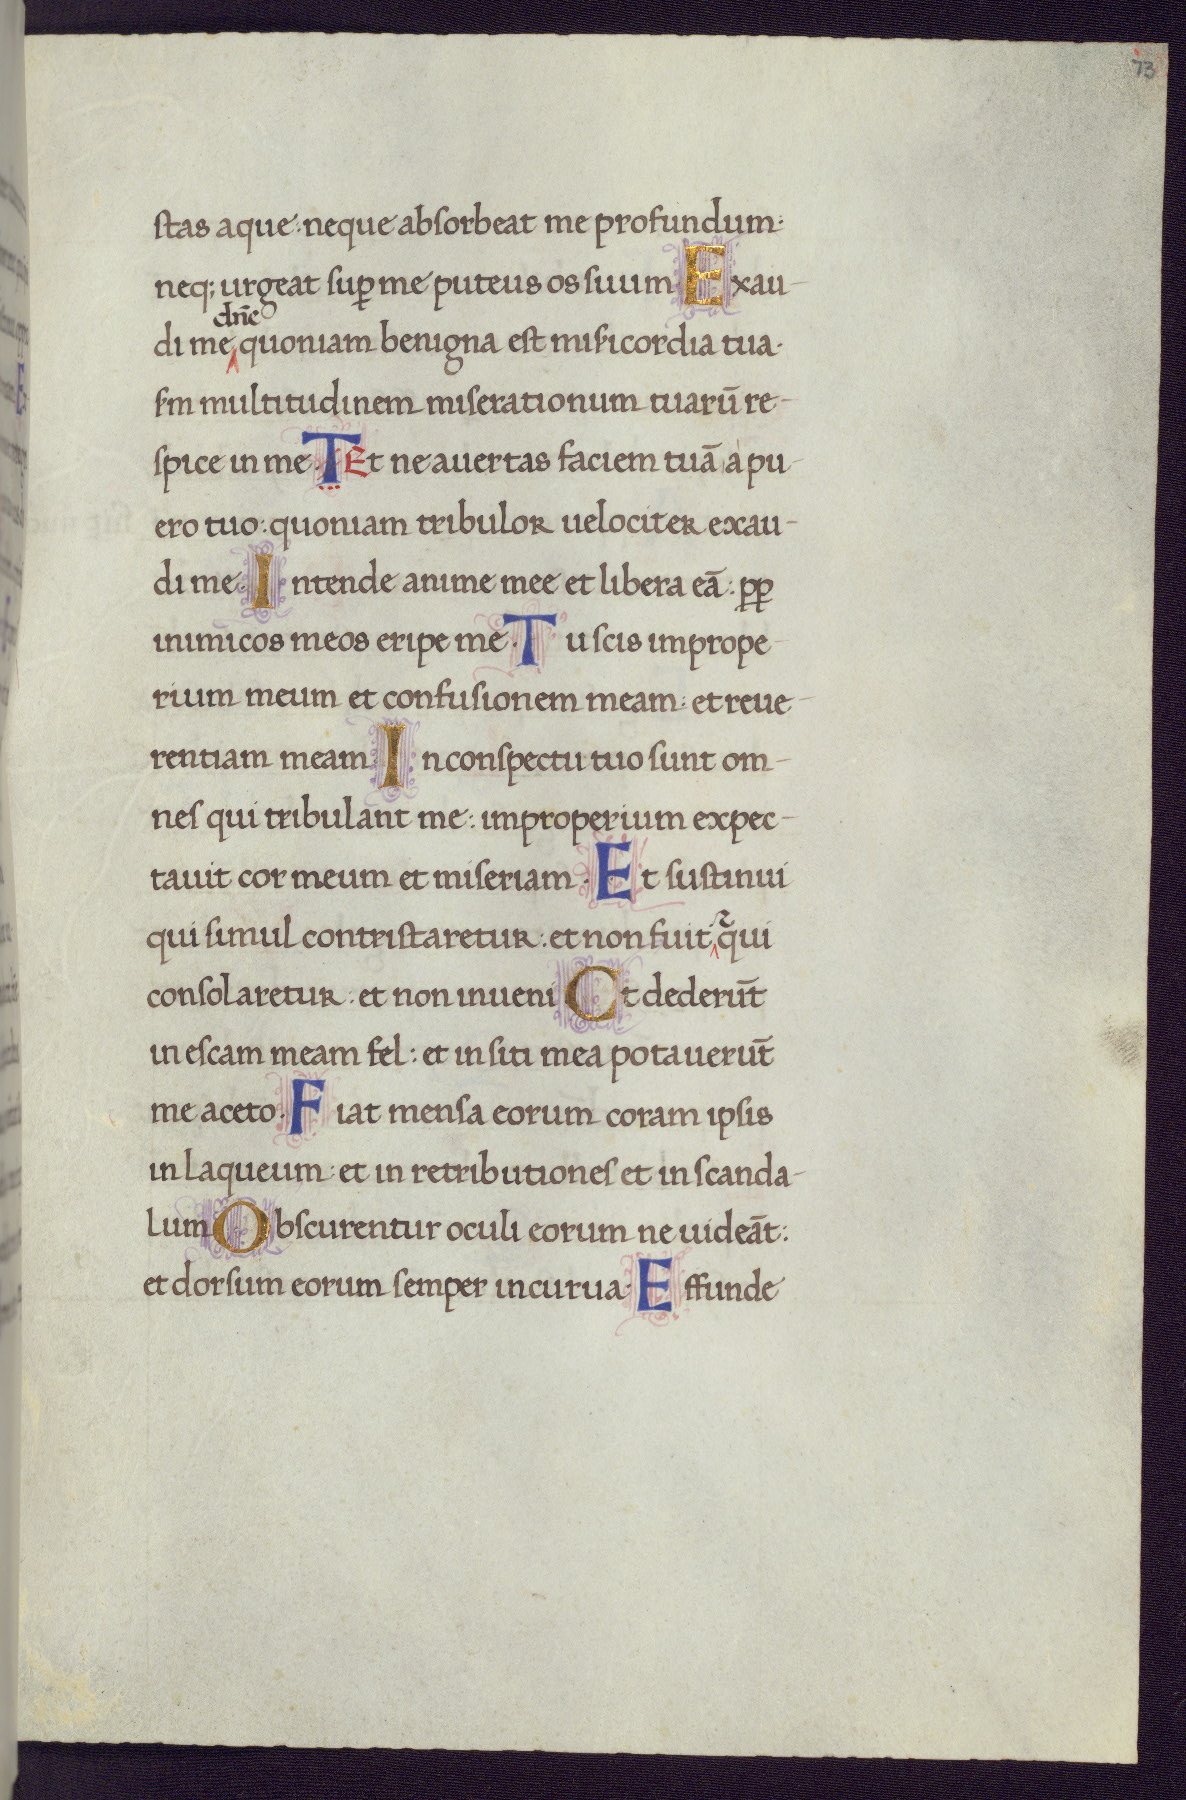 73
stas aque : neque absorbeat me profundum :
neq; urgeat sup me puteus os suum Exau-
dñe
di me quoniam benigna est misericordia tua ·
scdm multitudinem miserationum tuarū re-
spice in me · T Et ne avertas faciem tuā a pu-
ero tuo : quoniam tribulor uelociter exau-
di me · Intende anime mee et libera eā : pp
inimicos meos eripe me · Tu scis imprope-
rium meum et confusionem meam : et reue-
rentiam meam In conspectu tuo sunt om-
nes qui tribulant me : improperium expec-
tauit cor meum et miseriam · Et sustinui
qui simul contristaretur : et non fuit qui
consolaretur : et non inueni Ct dederūt
in escam meam fel : et in siti mea potauerūt
me aceto · Fiat mensa eorum coram ipsis
in laqueum : et in retributiones et in scanda-
lum Obscurentur oculi eorum ne uideāt :
et dorsum eorum semper incurua · Effunde